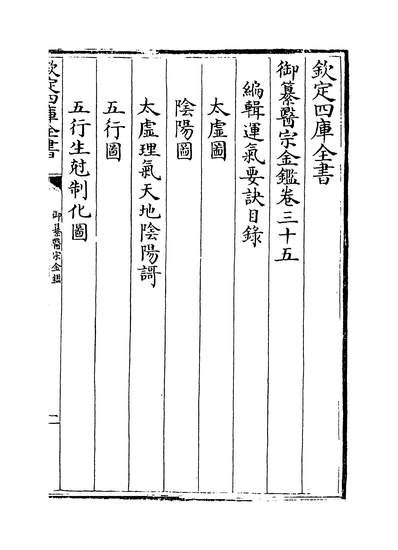 欽定四庫全書
御纂醫宗金鑑卷三十五
編輯運氣要訣目錄
太虛圖
陰陽圖
太虛理氣天地陰陽謌
五行圖
五行生尅制化圖
欽定四庫全書
御纂醫宗金鑑
一